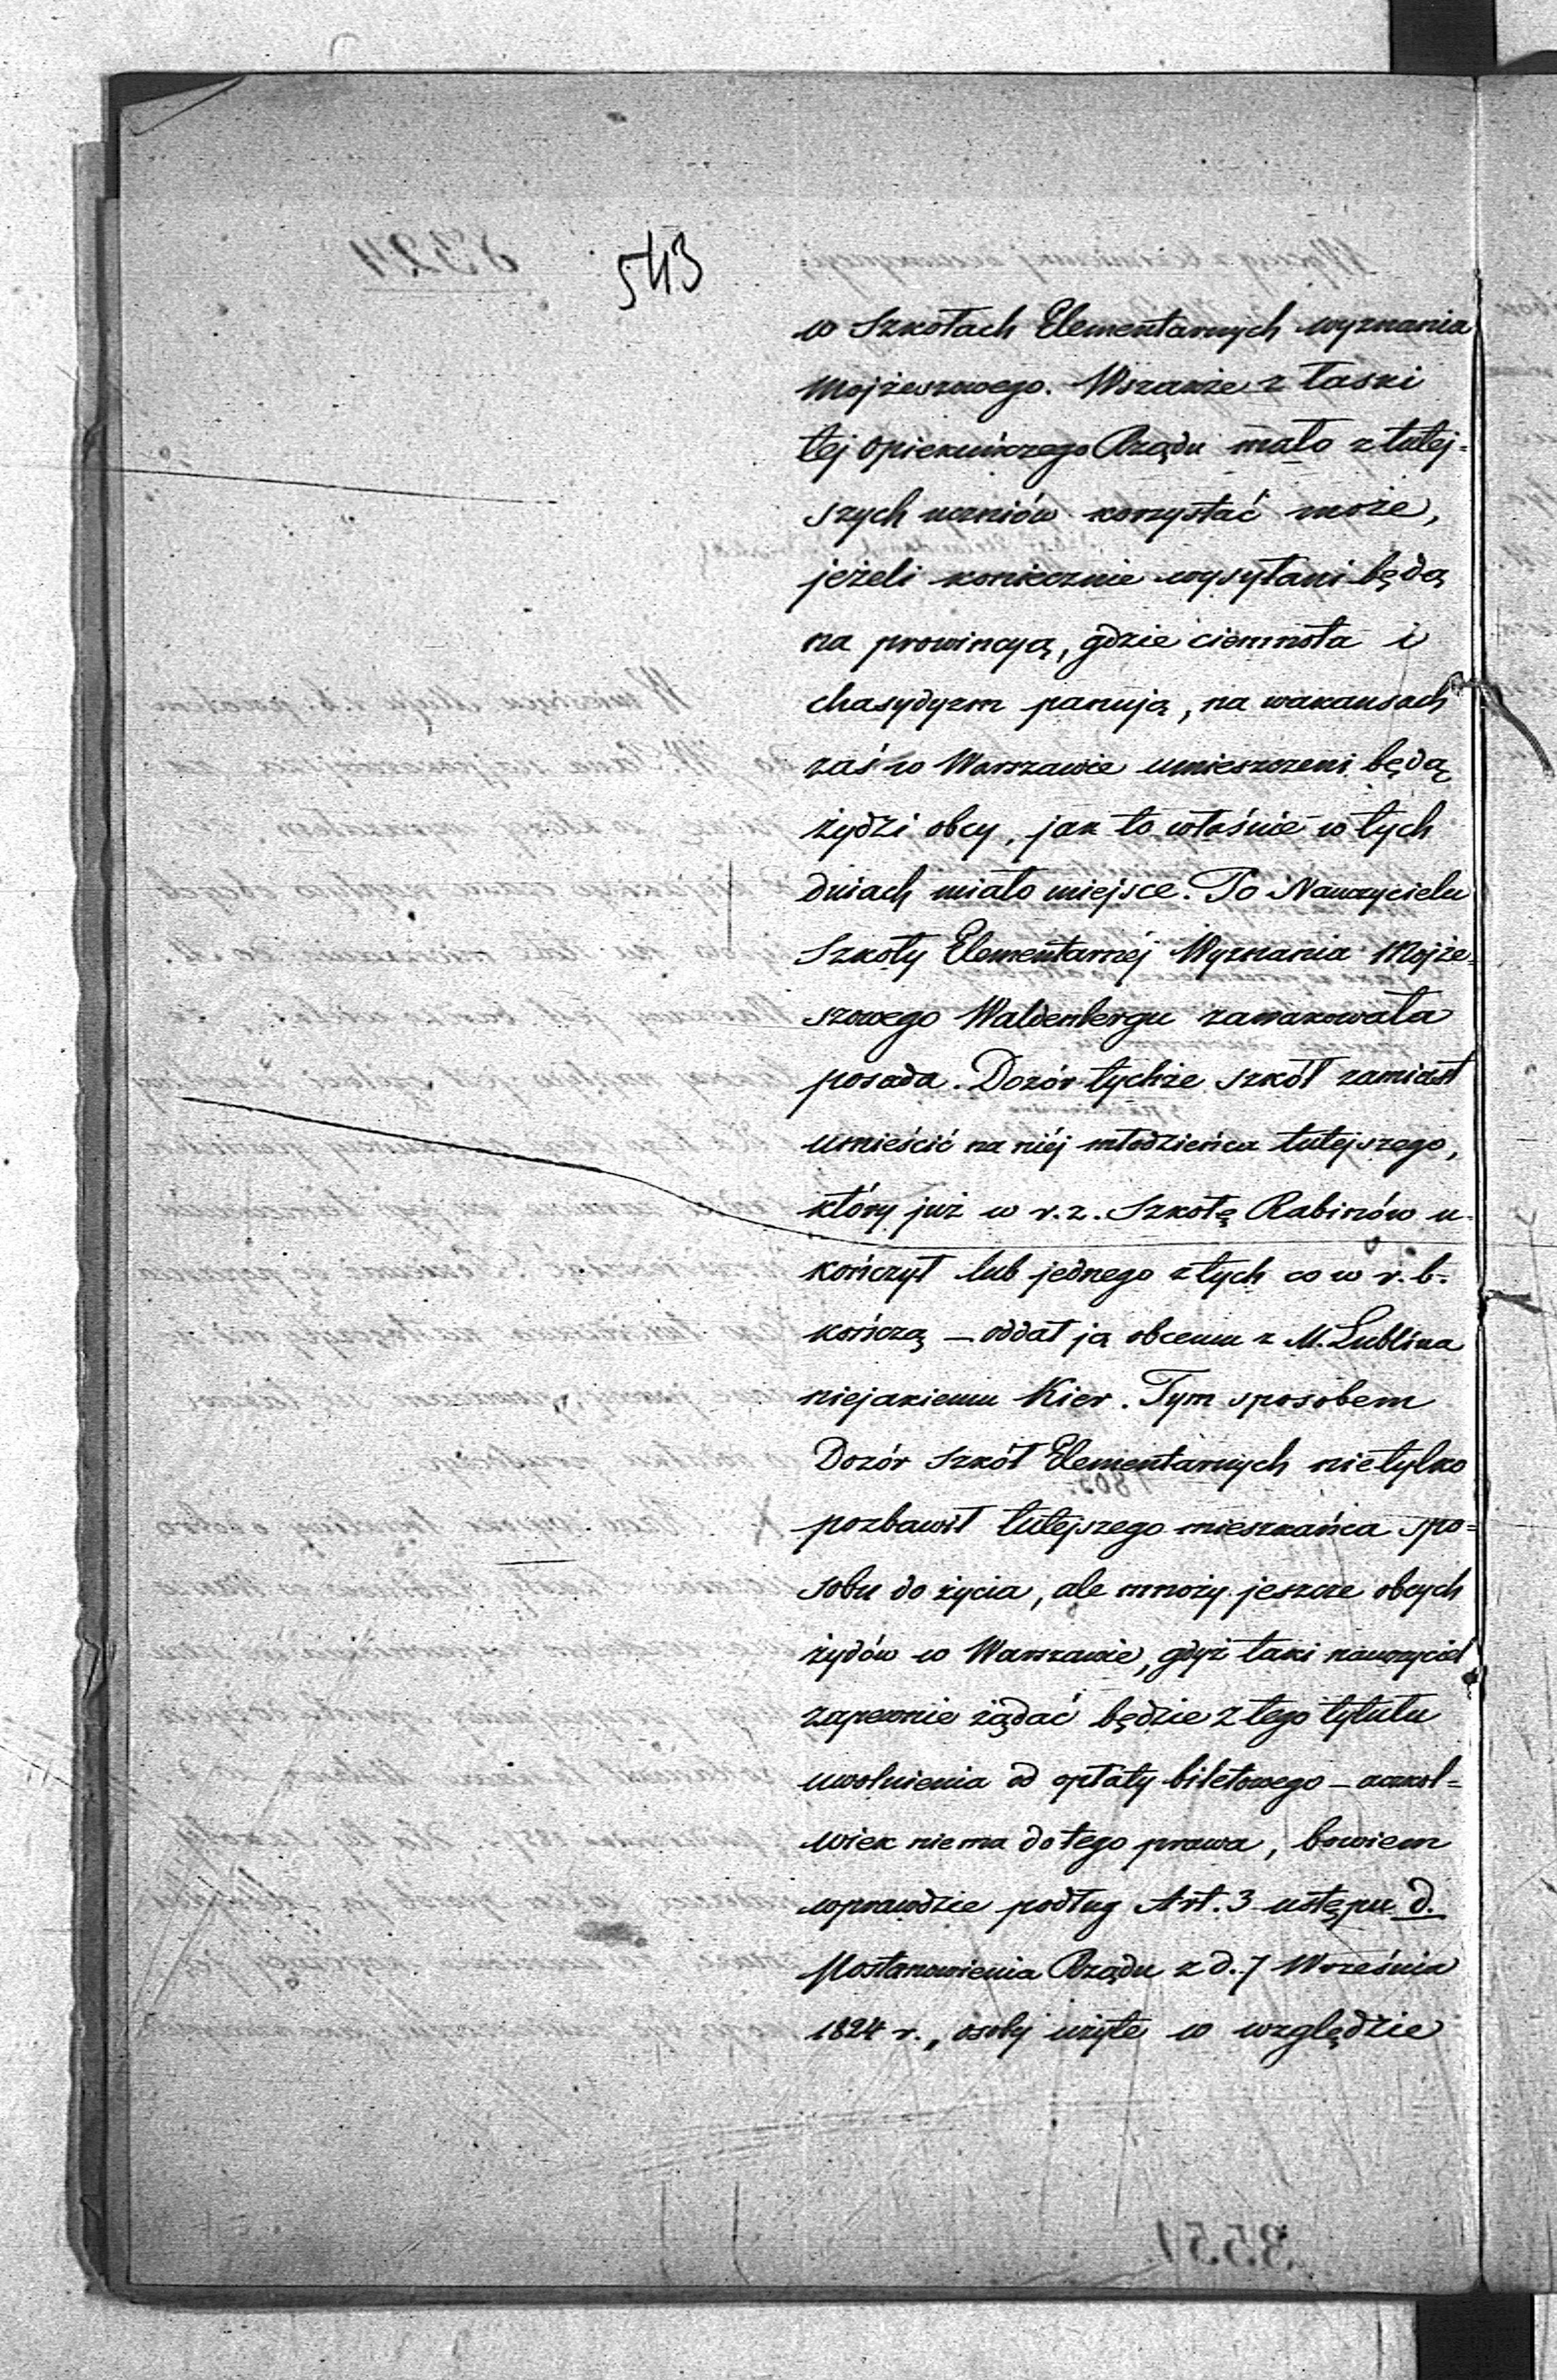 543
w Szkołach Elementarnych wyznania
Mojżeszowego. Wszakże z łaski
tej Opiekuńczego Rządu mało z tutej-
szych uczniów korzystać może,
jeżeli koniecznie wysyłani będą
na prowincyą, gdzie ciemnota i
chasydyzm panują, na wakansach
zaś w Warszawie umieszczeni będą
żydzi obcy, jak to właśnie w tych
dniach miało miejsce. Po Nauczycielu
Szkoły Elementarnéj Wyznania Mojże-
szowego Waldenbergu zawakowała
posada. Dozór tychże szkół zamiast
umieścić na niéj młodzieńca tutejszego,
który już w r. z. Szkołę Rabinów u-
kończył lub jednego z tych co w r. b.
kończą – oddał ją obcemu z M. Lublina
niejakiemu Kier. Tym sposobem
Dozór Szkół Elementarnych nietylko
pozbawił tutejszego mieszkańca spo-
sobu do życia, ale mnoży jeszcze obcych
żydów w Warszawie, gdyż taki nauczyciel
zapewnie żądać będzie z tego tytułu
uwolnienia od opłaty biletowego – aczkol-
wiek niema do tego prawa, bowiem
wprawdzie podług Art. 3 ustępu d.
Postanowienia Rządu z d. 7 Września
1824 r. „osoby użyte w względzie